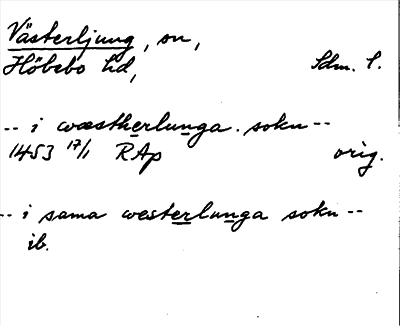 Västerljung, sn,
Hölebo hd, Sdm. l.
-- i wæstherlunga. sokn --
1453 17/1 RAp orig.
-- i sama westerlunga sokn --
ib.